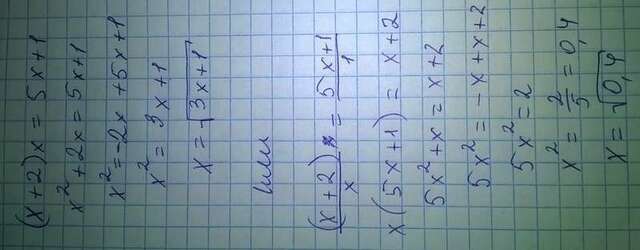 (x+2)x = 5x+1
x²+2x = 5x+1
x² = -2x+5x+1
x² = 3x+1
x = √3x+1
или
(x+2)x/x = 5x+1/1
x(5x+1) = x+2
5x²+x = x+2
5x² = -x+x+2
5x² = 2
x² = 2/5 = 0,4
x = √0,4